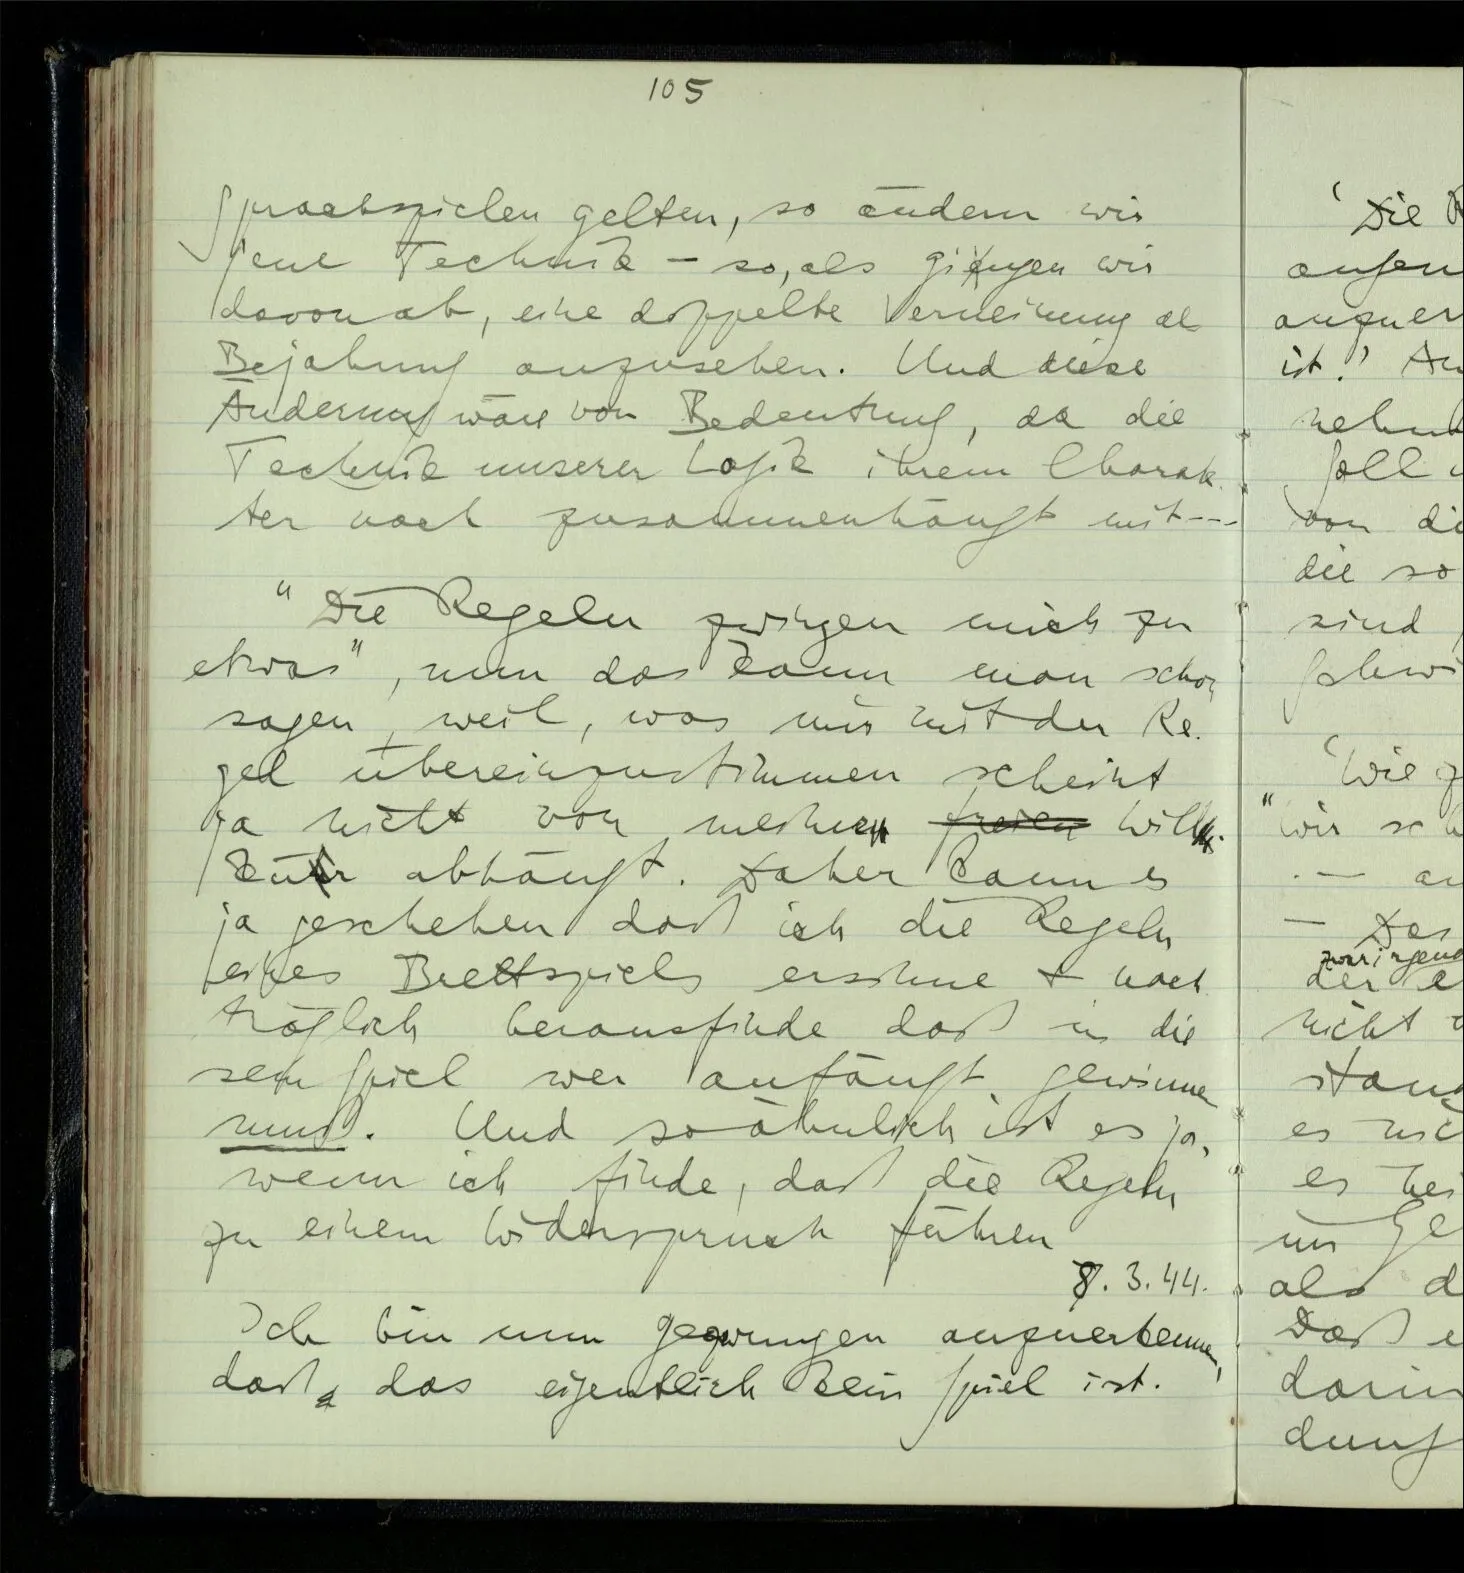 105
Sprachspielen gelten, so ändern wir
jene Technik – so, als gingen wir
davon ab, eine doppelte Verneinung als
Bejahung anzusehen. Und diese
Änderung wäre von Bedeutung, da die
Technik unserer Logik ihrem Charak-
ter nach zusammenhängt mit ---
"Die Regeln zwingen mich zu
etwas", nun das kann man schon
sagen, weil, was mir mit der Re-
gel übereinzustimmen scheint
ja nicht von meiner freien Will-
kür abhängt. Daher kann es
ja geschehen daß ich die Regeln
eines Brettspiels ersinne + nach
träglich herausfinde daß in die
sem Spiel wer anfängt gewinnen
muß. Und so ähnlich ist es ja,
wenn ich finde, daß die Regeln
zu einem Widerspruch führen
8.3.44.
Ich bin nun gezwungen anzuerkennen,
daß das eigentlich kein Spiel ist.
'Die
ist.'
von
die so
sind
'Wie
"wir
—
— Das
der
nicht
es
es
als d
Daß